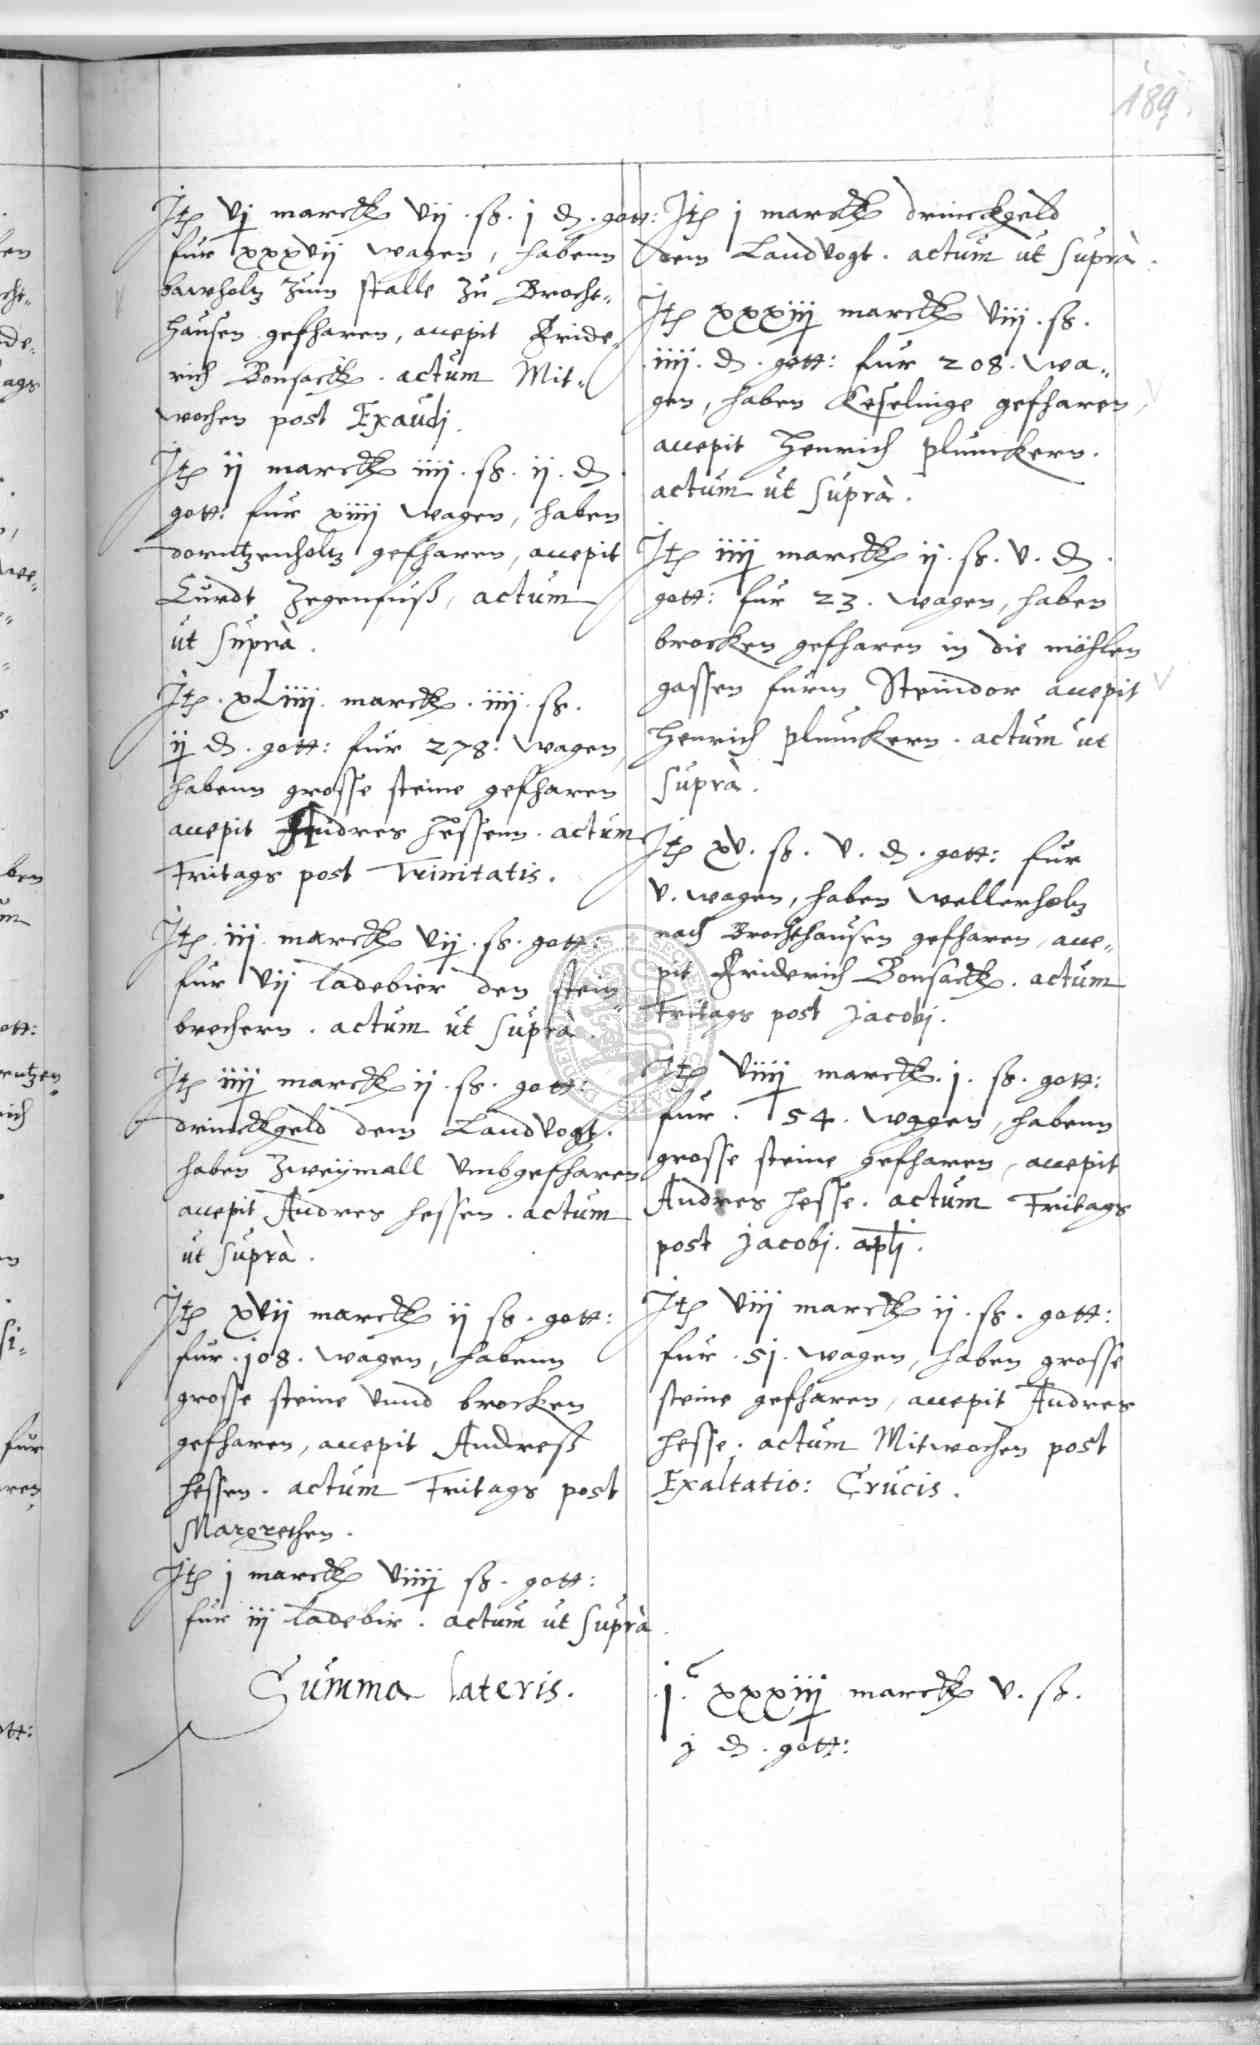 189.
Jt͠ vj marck vij . ß . j ₰ . gott:
fur xxxvij wagen, habenn
bawholtz zum stalle zu Brocht„
hausen gefharen, accepit Fride„
rich Bonsack . actum Mit„
wochen post Exaudj .
Jt͠ ij marck iiij . ß . ij . ₰ .
gott: fur xiiij wagen, haben
dorntzenholtz gefharen, accepit
Curdt Zegenfuß, actum
ut suprà .
Jt͠ . xLiiij . marck . iiij . ß .
ij ₰ . gott: fur 278 . wagen,
habenn grosse steine gefharen
accepit Andres hessenn . actum
Fritags post Trinitatis .
Jt͠ . iij . marck vij . ß . gott:
fur vij ladebier den stein„
brechern . actum ut suprà .
Jt͠ iiij marck ij . ß . gott:
drinckgeld dem Landvogt .
haben zweymall vmbgefharen
accepit Andres hessen . actum
ut suprà .
Jt͠ xvij marck ij ß . gott:
fur . j08 . wagen, habenn
grosse steine vnnd brocken
gefharen, accepit Andreß
hessen . actum Fritags post
Margrethen .
Jt͠ j marck viiij ß . gott:
fur iij ladebir . actum ut suprà .
Summa lateris .
Jt͠ j marck drinckgeld
dem Landvogt . actum ut suprà .
Jt͠ xxxiij marck viij . ß .
iiij . ₰ . gott: fur 208 . wa„
gen, haben Keselinge gefharen,
accepit Henrich Plunckern .
actum ut suprà .
Jt͠ iiij marck ij . ß . v . ₰ .
gott: fur 23 . wagen, haben
brocken gefharen in die möhlen
gassen furm Steindor accepit
Henrich Plunckern . actum ut
suprà .
Jt͠ xv . ß . v . ₰ . gott: fur
v . wagen, haben wellerholtz
nach Brochthausen gefharen, acce„
pit Friderich Bonsack . actum
Fritags post Jacobj .
Jt͠ viiij marck . j . ß . gott:
fur . 54 . wagen, habenn
grosse steine gefharen, accepit
Andres hesse . actum Fritags
post Jacobj . aplj .
Jt͠ viij marck ij . ß . gott:
fur . 5j . wagen, haben grosse
steine gefharen, accepit Andres
hesse . actum Mitwochen post
Exaltatio: Crucis .
. j . c xxxiij marck v . ß .
j ₰ . gott: